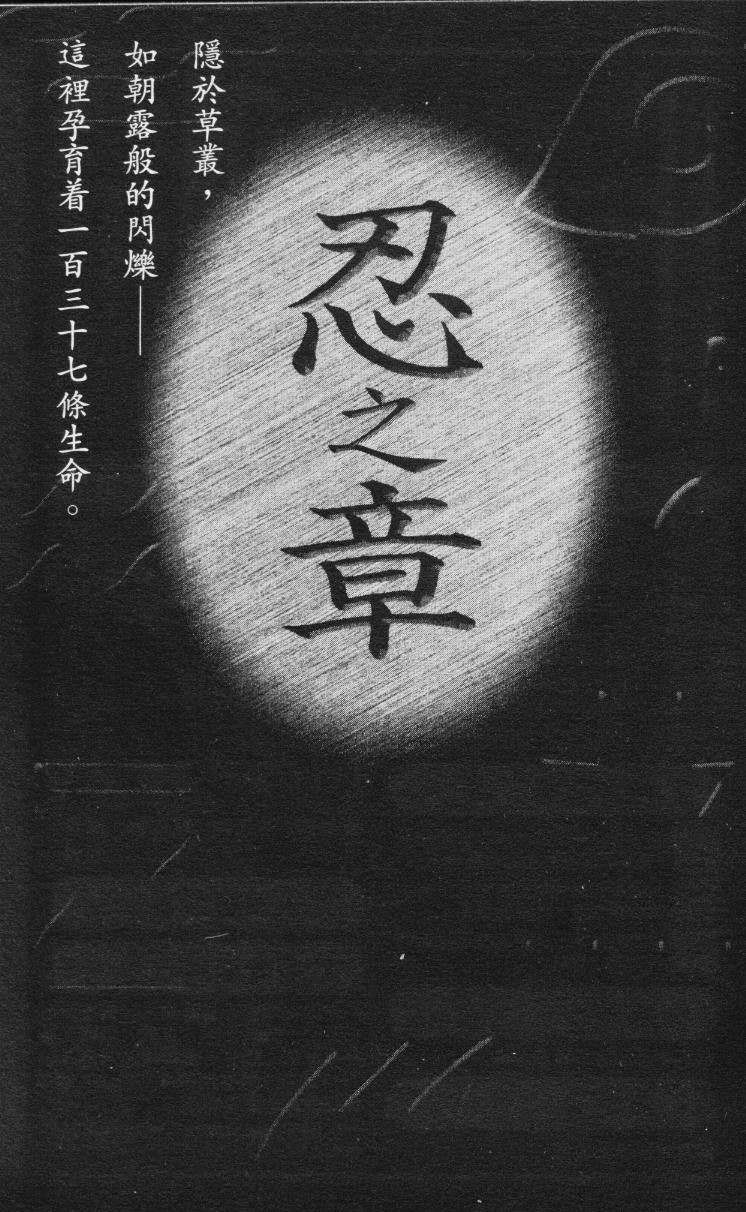 隱於草叢，
如朝露般的閃爍——
這裡孕育着一百三十七條生命。
忍之章